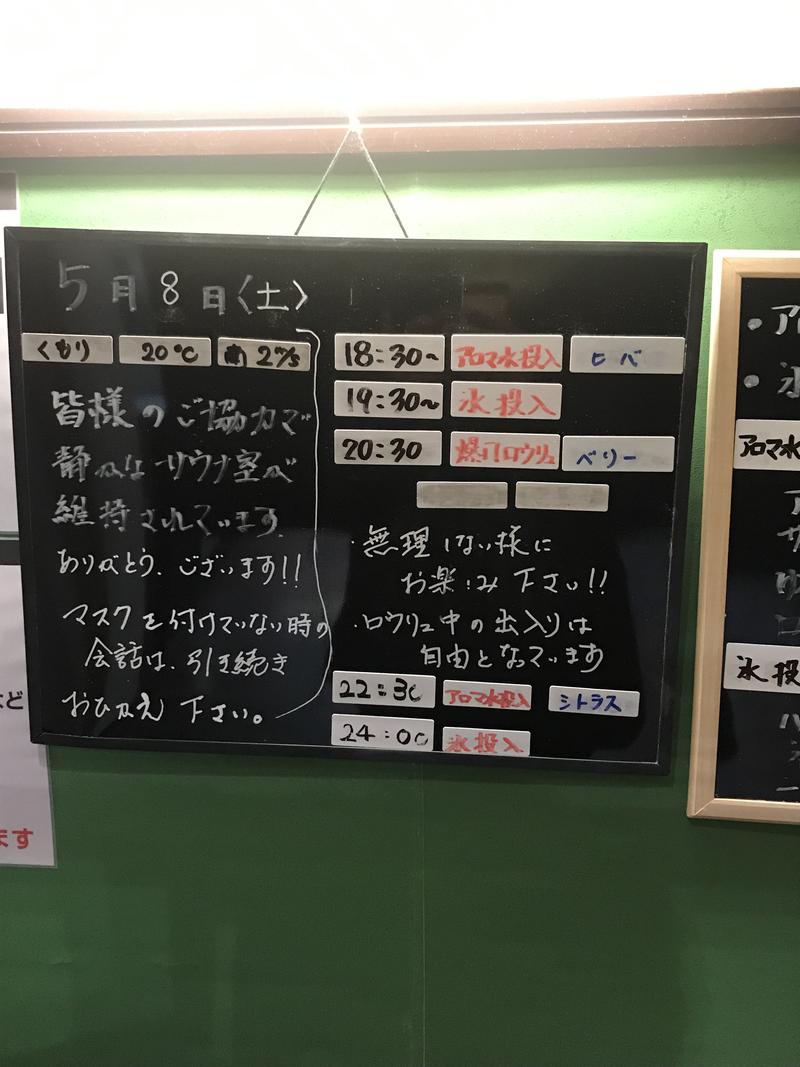 5月8日〈土〉
くもり 20℃ 南 2m/s
皆様のご協力で
静かなサウナ室が
維持されています。
ありがとう、ございます!!
マスクを付けていない時の
会話は、引き続き
おひかえ 下さい。
18:30~ アロマ水投入
19:30~ 氷投入
20:30 爆風ロウリュ ベリー
・無理しない様に
お楽しみ下さい!!
・ロウリュ中の出入りは
自由となっています
22:30 アロマ水投入 シトラス
24:00 氷投入
アロマ水
氷投
ます